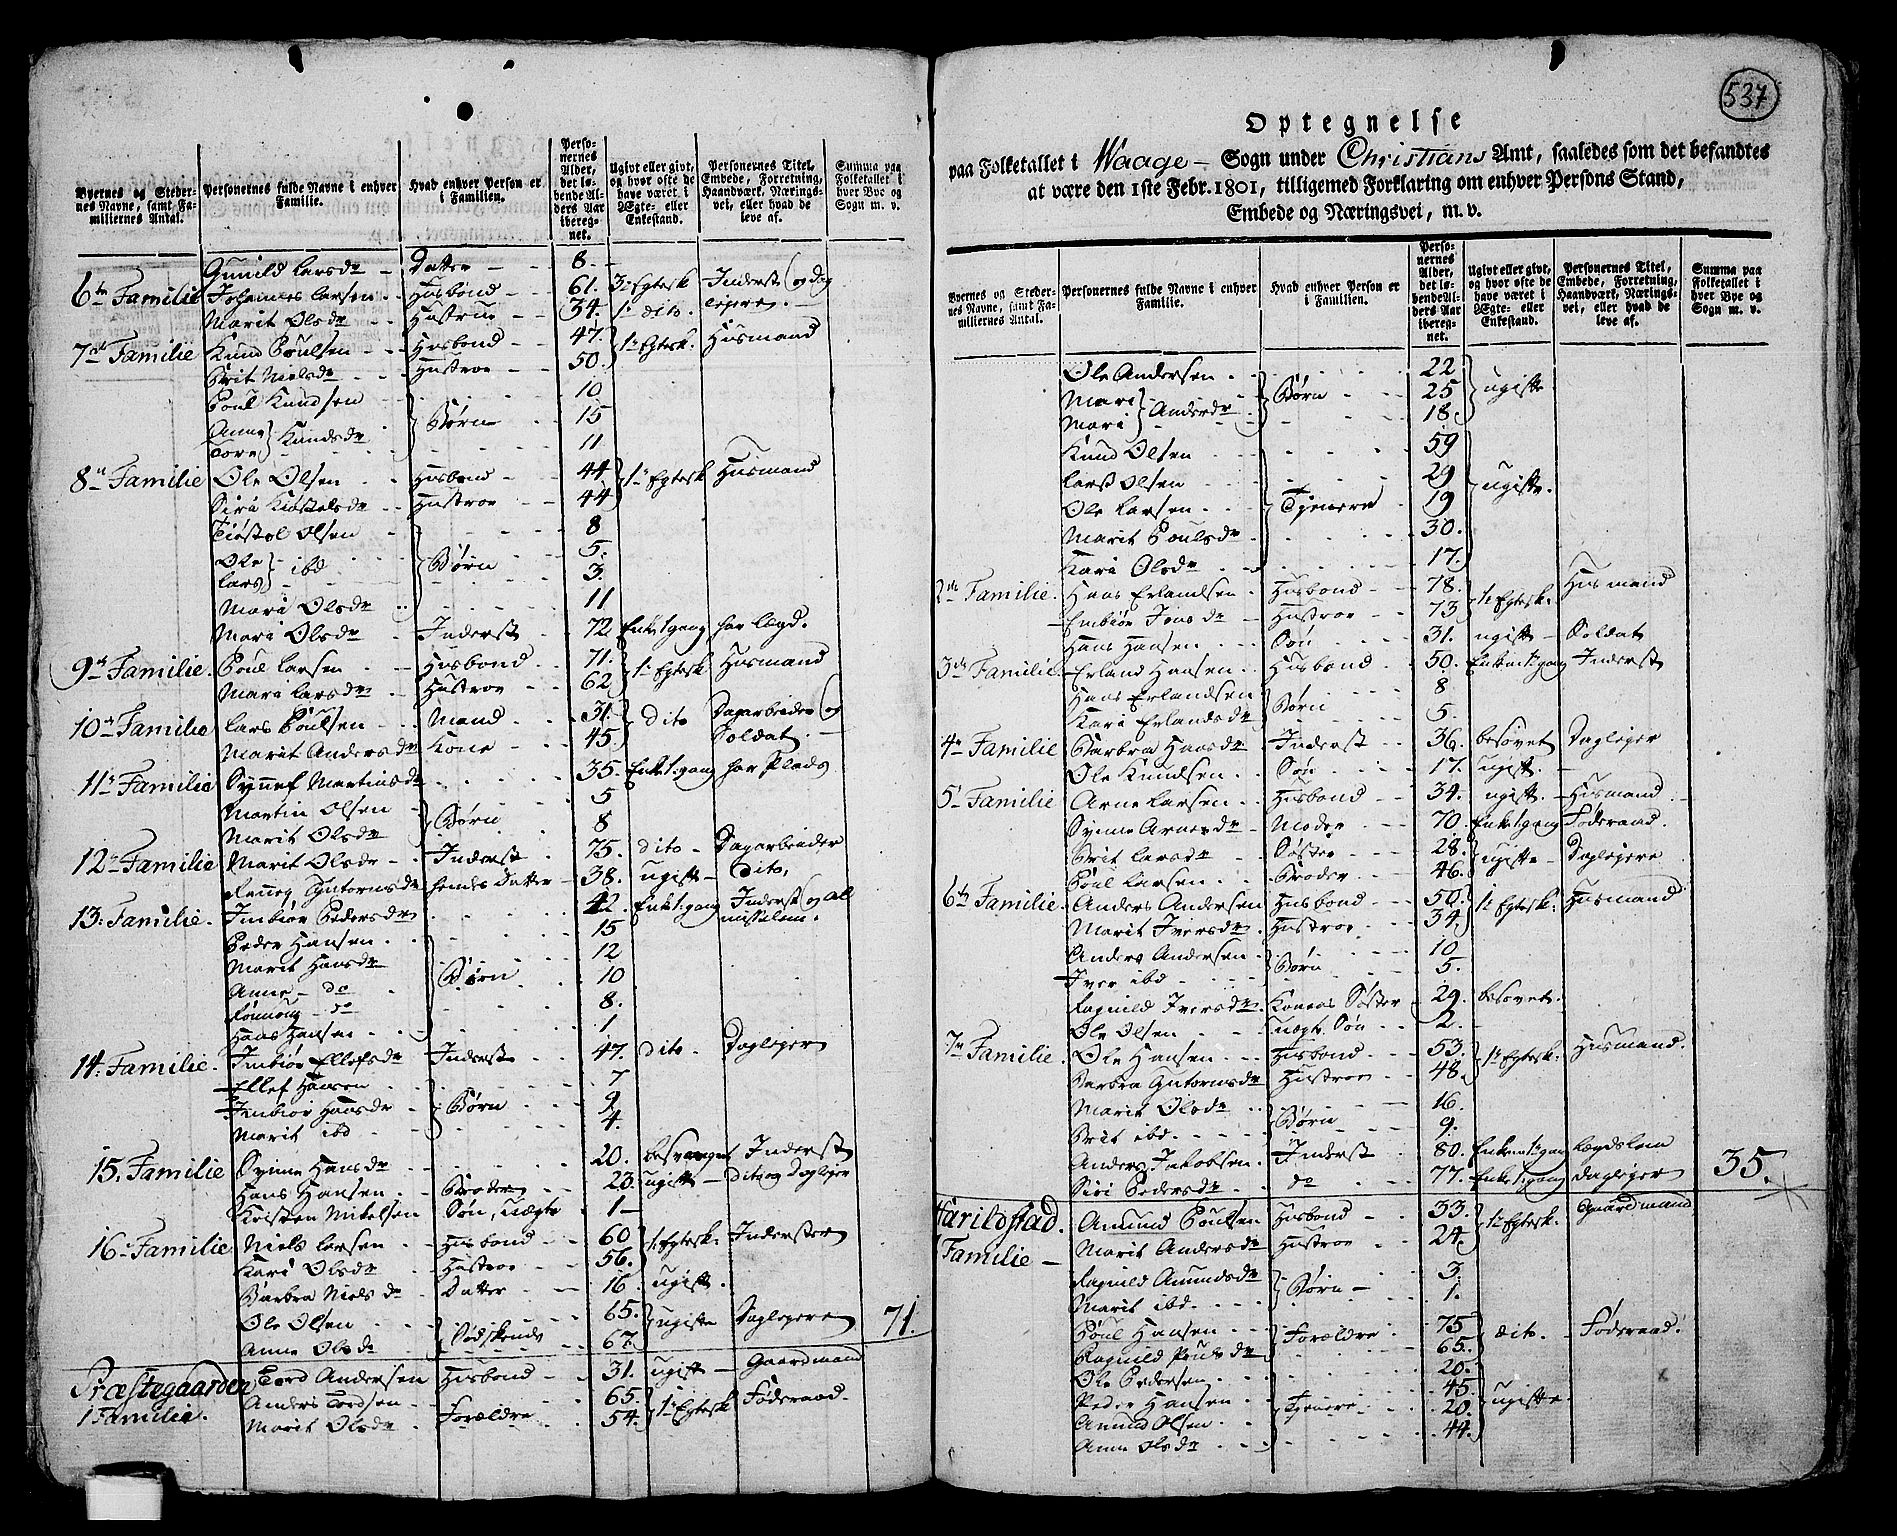 Byernes og Stedernes Navne, samt Familiernes Antal.
Personernes fulde Navne i enhver Familie.
Hvad enhver Person er i Familien.
Personernes Alder, det løbende Alders Aar iberegnet.
Ugivt eller givt, og hvor ofte de have været i Ægte- eller Enkestand.
Personernes Titel, Embede, Forretning, Haandværk, Næringsvei, eller hvad de leve af.
Summa paa Folketallet i hver Bye og Sogn m. v.
Gunild Larsdr Datter 8.
6te Familie Johannes Larsen Husbond 61. 3 Egtesk Inderst og dag
Marit Olsdr Hustrue 34. 1 dito. lejere
7de Familie Knud Poulsen Husbond 47. 1 Egtesk. Husmand
Brit Nielsdr Hustroe 50.
Poul Knudsen 10
Anne } Knudsdr Børn 15
Tore 11
8de Familie Ole Olsen Husbond 44 1 Egtesk Husmand
Siri Kiøstelsdr Hustroe 44
Tiøstol Olsen 8
Ole } ibd Børn 5.
Lars 3.
Mari Olsdr 11
Mari Olsdr Inderst 72 Enke 1 gang har lægd.
9de Familie. Poul Larsen Husbond 71. 1 Egtesk Husmand
Mari Larsdr Hustroe 62
10de Familie Lars Poulsen Mand 31. dito Dagarbeider og
Marit Andersdr Kone 45. Soldat.
11te Familie Synnef Martinsdr 35. Enke 1. gang har Plads
Martin Olsen Børn 5
Marit Olsdr 8
12te Familie Marit Olsdr Inderst 75. dito Dagarbeider
Ranneg Gutormsdr hendes datter 38. ugift dito.
13: Familie. Imbiør Pedersdr 42. Enke 1. gang Inderst og al
Peder Hansen 15 misselem.
Marit Hansdr Børn 12
Anne do 10
Rønnoug do 8.
Hans Hansen 1
14: Familie. Imbiør Ellefsdr Inderst 47. dito. Daglejer
Ellef Hansen 7
Imbiør Hansdr Børn 9
Marit ibd 4.
15. Familie Synne Hansdr 20. besvangret Inderst
Hans Hansen Broder 23. ugift dito og Daglejer
Kristen Mikelsen Søn, uægte 1
16. Familie Niels Larsen Husbond 60 1 Egtesk. Inderster
Kari Olsdr Hustroe 56.
Barbra Nielsdr Datter 16 ugift.
Ole Olsen Sødskende 65. ugifte Daglejere 71.
Anne Olsdr 67.
Præstegaarden Tord Andersen Husbond 31. ugift Gaardmand
1 Familie. Anders Tordsen Forældre 65. 1 Egtesk Føderaad
Marit Olsdr 54.
537
Optegnelse
paa Folketallet i Waage Sogn under Christians Amt, saaledes som det befandtes
at være den 1ste Febr. 1801, tilligemed Forklaring om enhver Persons Stand,
Embede og Næringsvei, m. v.
Byernes og Stedernes Navne, samt Familiernes Antal.
Personernes fulde Navne i enhver Familie.
Hvad enhver Person er i Familien.
Personernes Alder, det løbende Alders Aar iberegnet.
Ugivt eller givt, og hvor ofte de have været i Ægte- eller Enkestand.
Personernes Titel, Embede, Forretning, Haandværk, Næringsvei, eller hvad de leve af.
Summa paa Folketallet i hver Bye og Sogn m. v.
Ole Andersen 22
Mari } Andersdr Børn 25 ugifte
Mari 18
Knud Olsen 59
Lars Olsen 29
Ole Larsen Tjenere 19 ugifte.
Marit Poulsdr 30.
Kari Olsdr 17.
2de Familie. Hans Erlandsen Husbond 78. 1 Egtesk. Husmand
Embiør Jonsdr Hustroe 73
Hans Hansen Søn 31. ugift Soldat
3de Familie Erland Hansen Husbond 50. Enkem 1 gang Inderst
Hans Erlandsen Børn 8
Kari Erlandsdr 5.
4de Familie Barbra Hansdr Inderst 36. besovet Daglejer
Ole Knudsen Søn 17. ugift.
5te Familie Arne Larsen Husbond 34. ugift. Husmand
Synne Arnesdr Moder 70. Enke 1 gang Føderaad.
Brit Larsdr Søster 28. ugifte Daglejere
Poul Larsen Broder 46.
6te Familie. Anders Andersen Husbond 50. 1 Egtesk. Husmand
Marit Iversdr Hustroe 34.
Anders Andersen Børn 10
Iver ibd 5.
Ragnild Iversdr Konens Søster 29. besovet.
Ole Olsen uægte Søn 2.
7de Familie. Ole Hansen Husbond 53. 1 Egtesk. Husmand.
Barbra Gutormsdr Hustroe 48.
Marit Olsdr Børn 16.
Brit ibd. 9.
Anders Jakobsen Inderst 80. Enkem 1 gang lægdslem
Siri Pedersdr do 77. Enke 1. gang daglejer 35.
Harildstad. Amund Poulsen Husbond 33. 1 Egtesk. Gaardmand
1 Familie Marit Andersdr Hustroe 24.
Ragnild Amundsdr Børn 3.
Marit ibd. 1.
Poul Hansen Forældre 75 dito. Føderaad.
Ragnild 65.
Ole Pedersen 20.
Peder Hansen Tjenere 45 ugifte.
Amund Olsen 20.
Anne Olsdr 44.